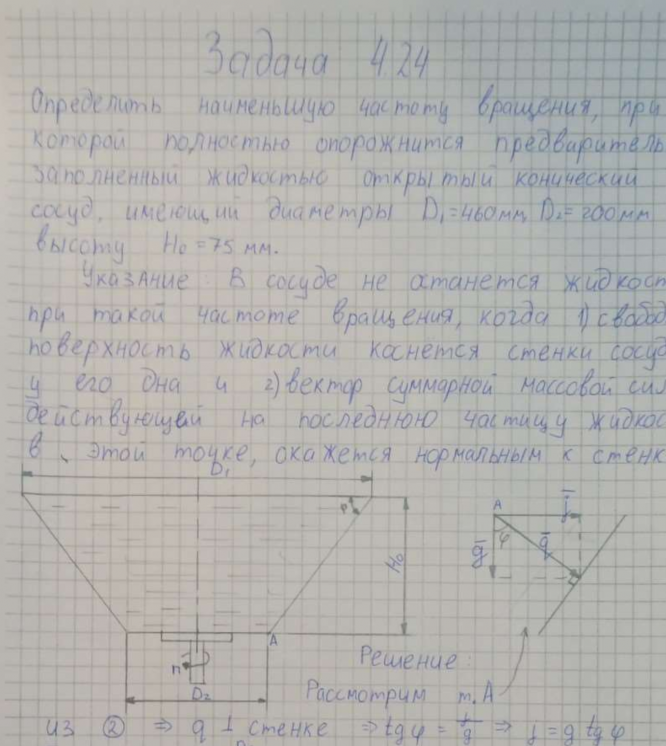 Задача 4.24
Определить наименьшую частоту вращения, при
которой полностью опорожнится предваритель
заполненный жидкостью открытый конический
сосуд, имеющий диаметры D₁=460мм, D₂=200мм
высоту H₀=75 мм.
Указание: В сосуде не останется жидкост
при такой частоте вращения, когда 1) свобод
поверхность жидкости коснется стенки сосуд
у его дна и 2) вектор суммарной массовой сил
действующей на последнюю частицу жидкос
в этой точке, окажется нормальным к стенк
D₁
A
j
g
φ
q
H₀
A
n
D₂
Решение:
Рассмотрим т.А
из ② ⇒ q ⊥ стенке ⇒ tgφ = j/g ⇒ j = g tgφ